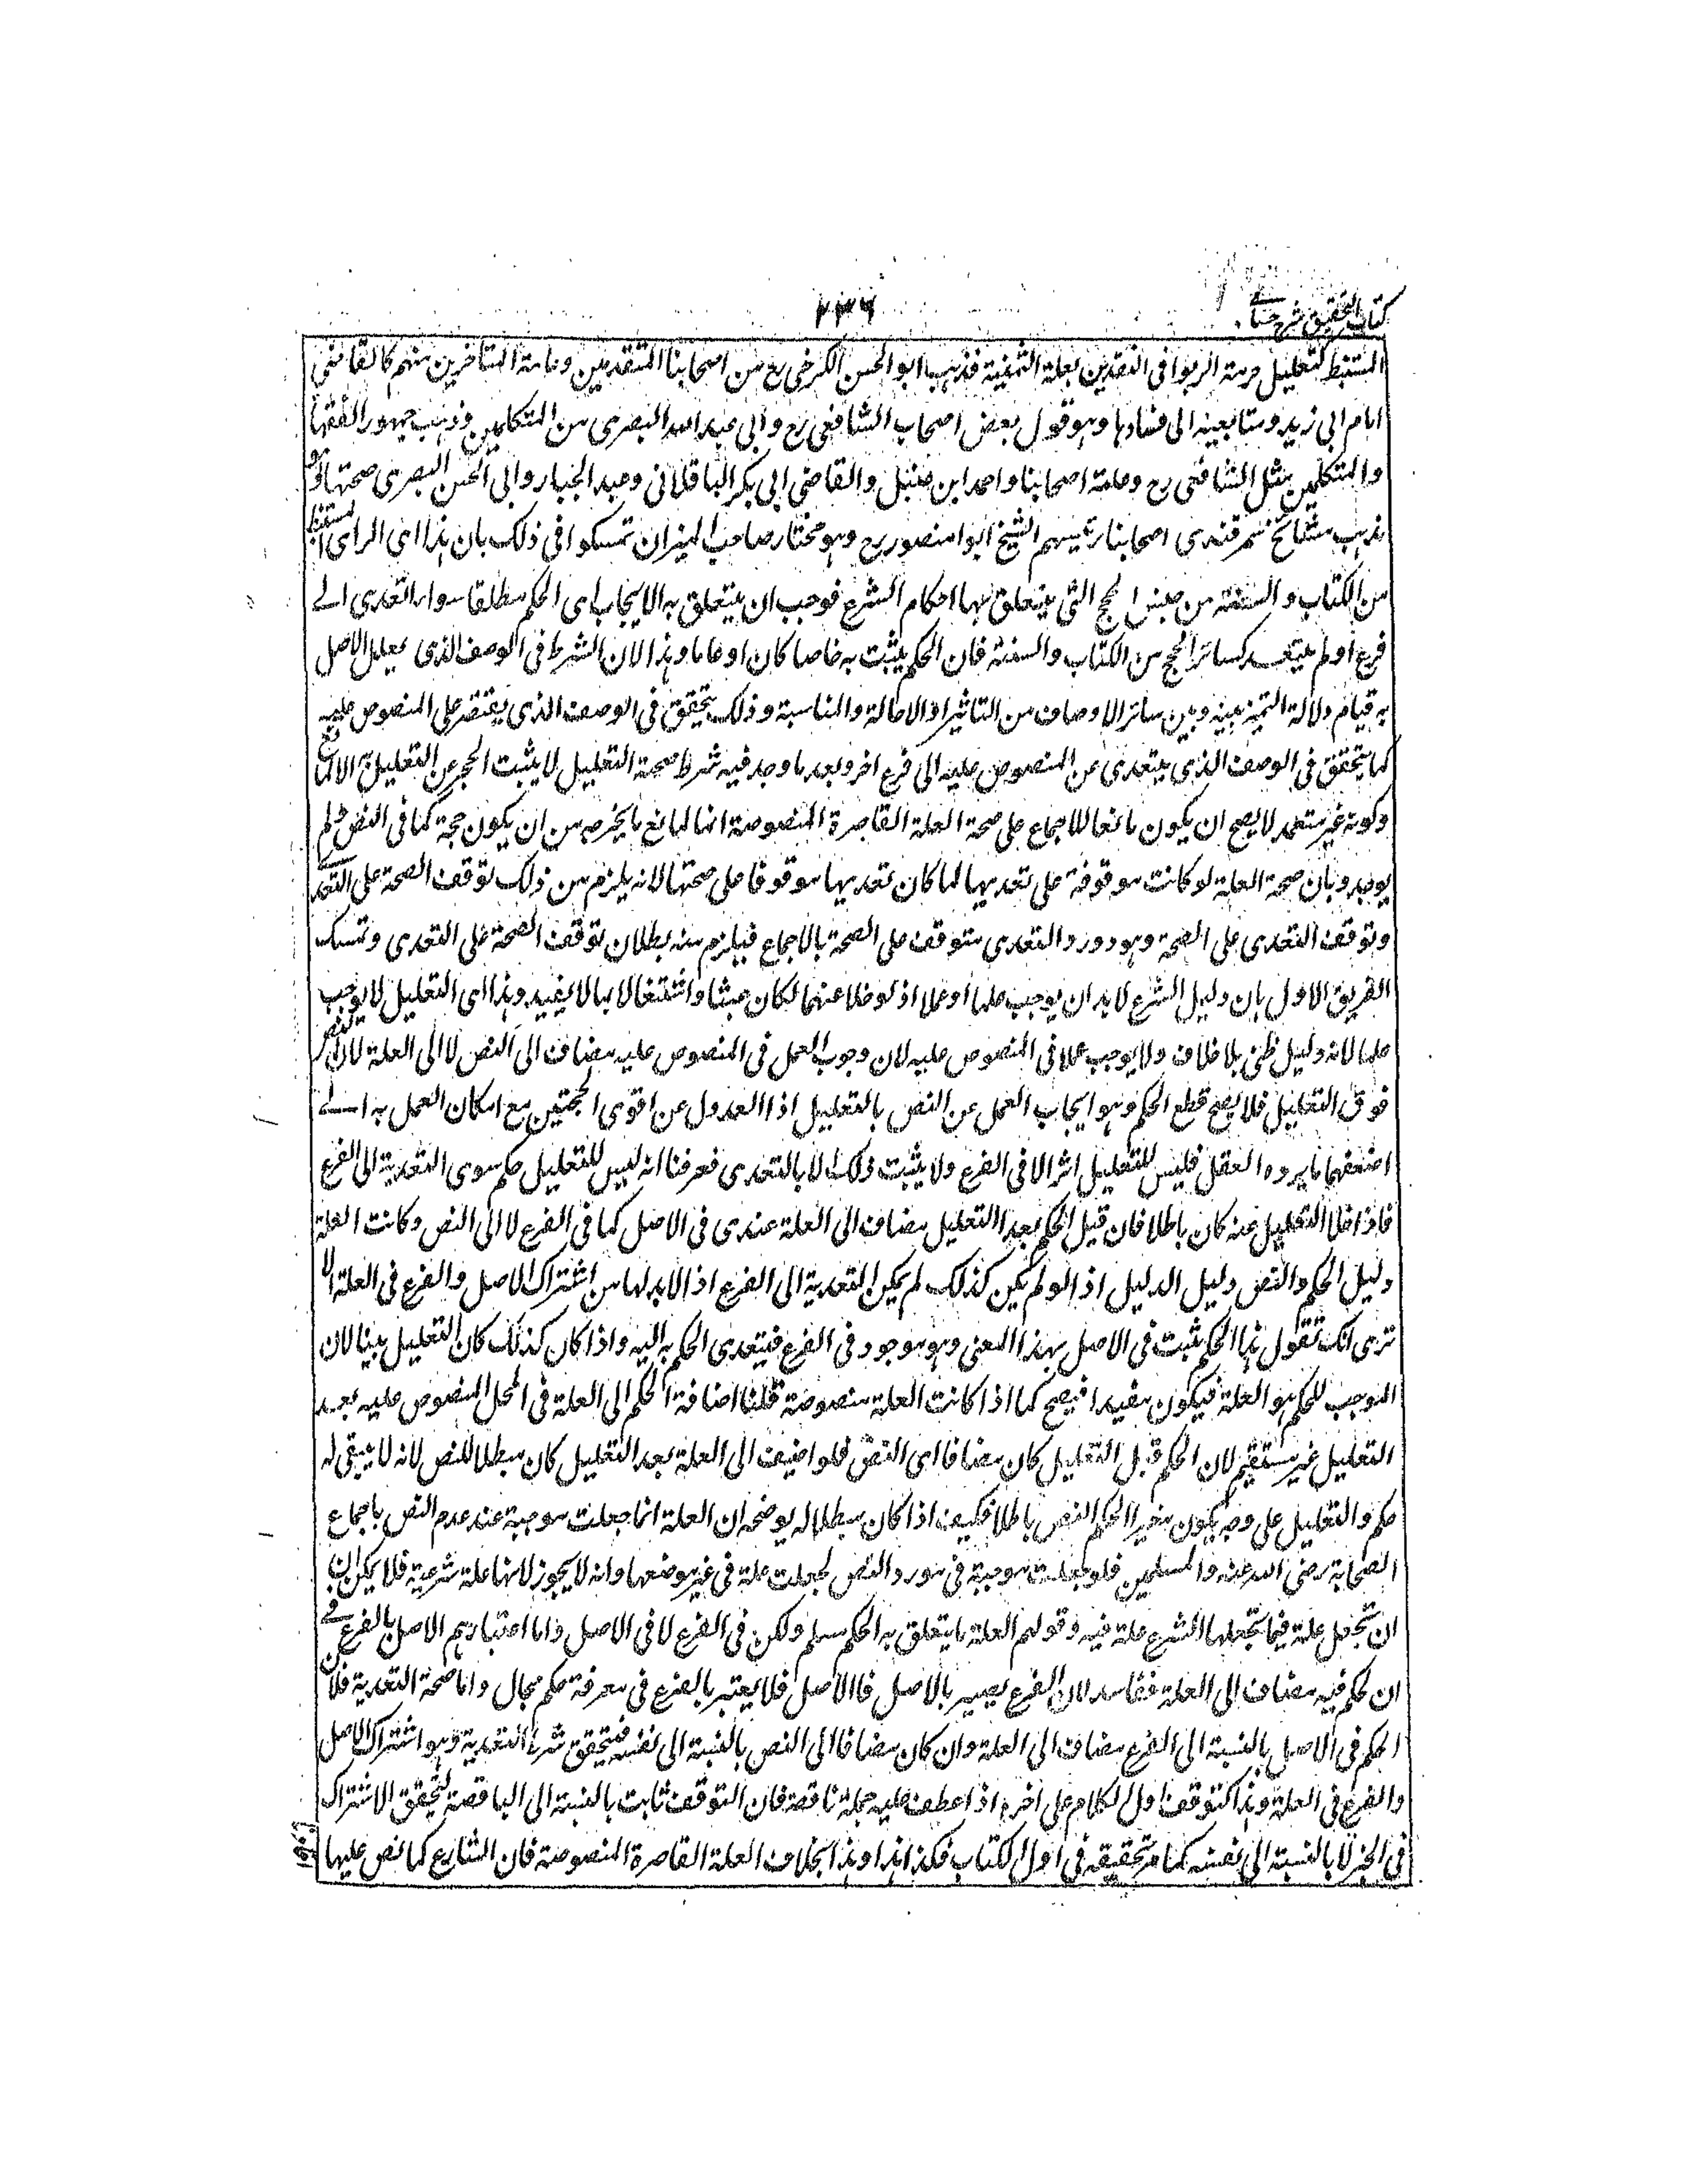 كتاب التحقيق شرح حسامي
٢٣٦
المستنبط كتعليل حرمة الربوا فى النقدين بعلة الثمنية فذهب ابو الحسن الكرخى رح من اصحابنا المتقدمين وعامة المتاخرين منهم كالقاضى
امام ابى زيد ومتابعيه الى فسادها وهو قول بعض اصحاب الشافعى رح وابى عبد الله البصرى من المتكلمين وذهب جمهور الفقها
والمتكلمين مثل الشافعى رح وعامة اصحابنا واحمد ابن حنبل والقاضى ابى بكر الباقلانى وعبد الجبار وابى الحسن البصرى صحتها وهو
مذهب مشائخ سمرقندى اصحابنا رئيسهم الشيخ ابوا منصور رح وهو مختار صاحب الميزان تمسكوا فى ذلك بان هذا اى الراى المستنبط
من الكتاب والسنة من جنس الحجج التى يتعلق بها احكام الشرع فوجب ان يتعلق به الايجاب اى الحكم مطلقا سواء التعدى الے
فرع او لم يتعد كسائر الحجج من الكتاب والسنة فان الحكم يثبت به خاصا كان او عاما وهذا لان الشرط فى الوصف الذى يعلل الاصل
به قيام دلالة التميز بينه وبين سائر الاوصاف من التاثير او الاحالة والمناسبة وذلك يتحقق فى الوصف الذى يقتصر على المنصوص عليه
كما يتحقق فى الوصف الذى يتعدى عن المنصوص عليه الى فرع اخر وبعد ما وجد فيه شرط صحة التعليل لا يثبت الحجر عن التعليل به الا لمانع
وكونه غير متعد لا يصح ان يكون مانعا للاجماع على صحة العلة القاصرة المنصوصة انما المانع ما يخرجه من ان يكون حجة كما فى النص ولم
يوجد وبان صحة العلة لو كانت موقوفة على تعديها لما كان تعديها موقوفا على صحتها لانه يلزم من ذلك توقف الصحة على التعدے
وتوقف التعدى على الصحة وهو دور والتعدى متوقف على الصحة بالاجماع فيلزم منه بطلان توقف الصحة على التعدى وتمسك
الفريق الاول بان دليل الشرع لابد ان يوجب علما او عملا اذ لو خلا عنهما لكان عبثا واشتغالا بما لا يفيد وهذا اى التعليل لا يوجب
علما لانه دليل ظنى بلا خلاف ولا يوجب عملا فى المنصوص عليه لان وجوب العمل فى المنصوص عليه مضاف الى النص لا الى العلة لان النص
فوق التعليل فلا يصح قطع الحكم وهو ايجاب العمل عن النص بالتعليل اذا العدول عن اقوى الحجتين مع امكان العمل به الے
اضعفهما ما يرده العقل فليس للتعليل اثر الا فى الفرع ولا يثبت ذلك الا بالتعدى فعرفنا انه ليس للتعليل حكم سوى التعدية الى الفرع
فاذا خلا التعليل عنه كان باطلا فان قيل الحكم بعد التعليل مضاف الى العلة عندى فى الاصل كما فى الفرع لا الى النص وكانت العلة
دليل الحكم والنص دليل الدليل اذ الو لم يكن كذلك لم يمكن التعدية الى الفرع اذ لا بد لها من اشتراك الاصل والفرع فى العلة الا
ترى انك تقول هذا الحكم ثبت فى الاصل بهذا المعنى وهو موجود فى الفرع فيتعدى الحكم به اليه واذا كان كذلك كان التعليل بينا لان
الموجب للحكم هو العلة فيكون مفيدا فيصح كما اذا كانت العلة منصوصة قلنا اضافة الحكم الى العلة فى المحل المنصوص عليه بعد
التعليل غير مستقيم لان الحكم قبل التعليل كان مضافا اى النص فلو اضيف الى العلة بعد التعليل كان مبطلا للنص لانه لا يبقى له
حكم والتعليل على وجه يكون مغيرا لحكم النص باطل فكيف اذا كان مبطلا له يوضحه ان العلة انما جعلت موجبة عند عدم النص باجماع
الصحابة رضى الله عنه والمسلمين فلو جعلت موجبة فى مورد النص لجعلت علة فى غير موضعها وانه لا يجوز لانها علة شرعية فلا يمكن
ان تجعل علة فيما تجعلها الشرع علة فيه وقولهم العلة ما يتعلق به الحكم مسلم ولكن فى الفرع لا فى الاصل واما اعتبارهم الاصل بالفرع فے
ان حكم فيه مضاف الى العلة ففاسد لان الفرع يعتبر بالاصل فاالاصل فلا يعتبر بالفرع فى معرفة حكم بحال واما صحة التعدية فلان
الحكم فى الاصل بالنسبة الى الفرع مضاف الى العلة وان كان مضافا الى النص بالنسبة الى نفسه فيتحقق شرط التعدية وهو اشتراك الاصل
والفرع فى العلة وهذا كتوقف اول الكلام على اخره اذا عطف عليه جملة ناقصة فان التوقف ثابت بالنسبة الى الناقصة ليتحقق الاشتراك
فى الخبر لا بالنسبة الى نفسه كما مر تحقيقه فى اول الكتاب فكذا هذا وهذا بخلاف العلة القاصرة المنصوصة فان الشارع كما نص عليها